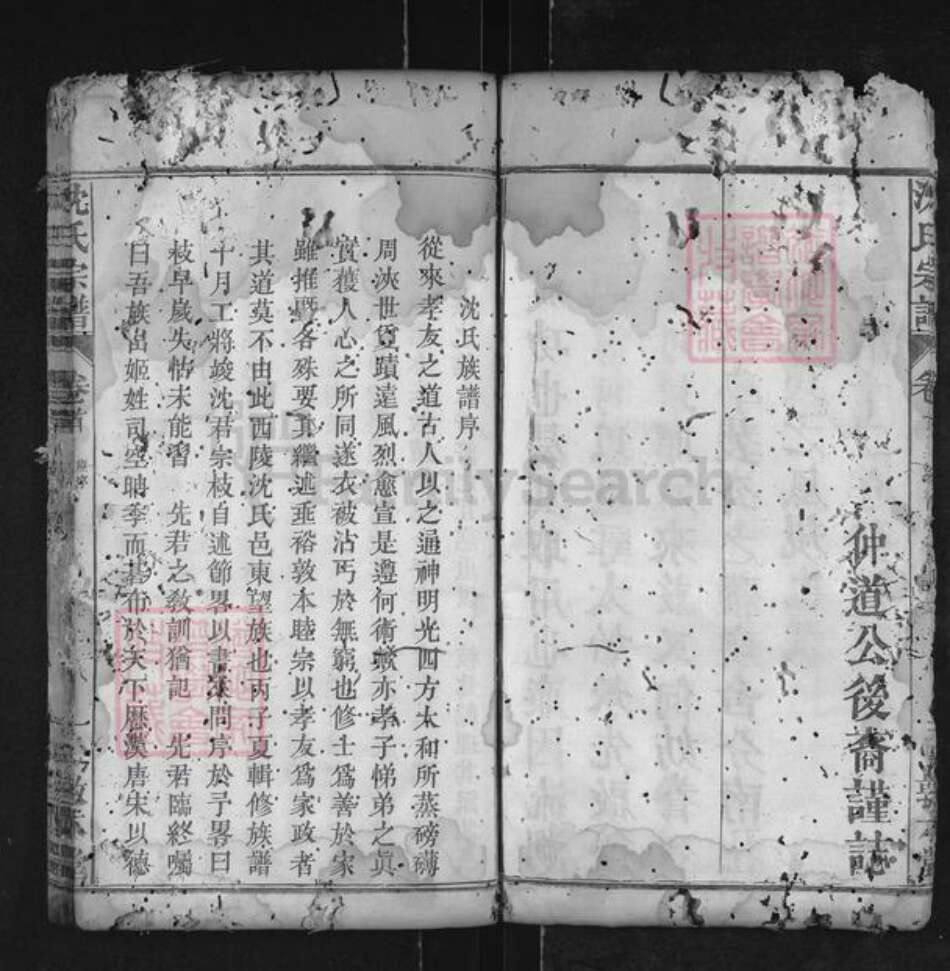 沈氏宗譜
卷首
仲道公後裔謹誌
沈氏族譜序
從來孝友之道古人以之通神明光四方太和所蒸磅礴
周浹世貨蹟遠風烈愈宣是遵何術歟亦孝子悌弟之眞
實獲人心之所同遂衣被沾丐於無窮也修士爲善於家
雖推暨各殊要其繼述垂裕敦本睦宗以孝友爲家政者
其道莫不由此西陵沈氏邑東望族也丙子夏輯修族譜
十月工將竣沈君宗枝自述節畧以書來問序於予畧曰
枝早歲失怙未能習 先君之敎訓猶記 先君臨終囑
曰吾族出姬姓司空聃季而基布於天下歷漢唐宋以德
沈氏宗譜
卷首
FamilySearch